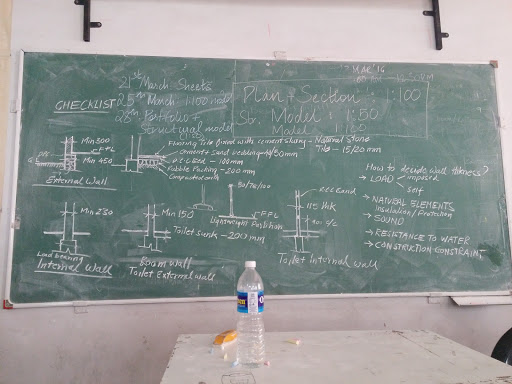 21st March Sheets
25th March 1:100
28th Portfolio +
Structural model
CHECKLIST
MAR '16
Plan + Section : 1:100
Model : 1:50
Model
Min 300
FFL
Min 450
External Wall
Flooring Tile
with cement
Natural Stone
Tile - 15/20 mm
cement + Sand
P.C.C Bed - 100mm
Packing - 200 mm
Min 230
Load bearing
Internal Wall
Min 150
Toilet sunk - 200 mm
Toilet External wall
50/70/100
FFL
Lightweight Partition
RCC Band
115 thk
Toilet Internal wall
How to decide wall thickness?
→ LOAD
imposed
self
→ NATURAL ELEMENTS
Insulation / Protection
→ SOUND
→ RESISTANCE TO WATER
→ CONSTRUCTION CONSTRAINT